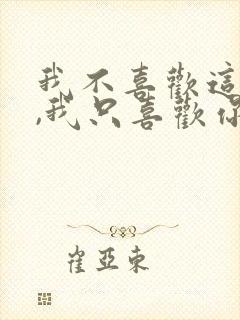 我不喜歡這
,我只喜歡你
崔亞東